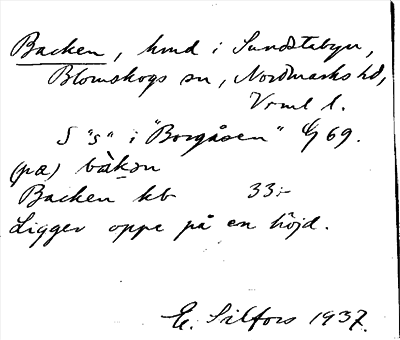 Backen, hmd i Sundstabyn,
Blomskogs sn, Nordmarks hd,
Vrml l.
S "s" i "Borgåsen" 4/7 69.
(pæ) bàkən
Backen kb 33:-
Ligger oppe på en höjd.
E. Silfors 1937.